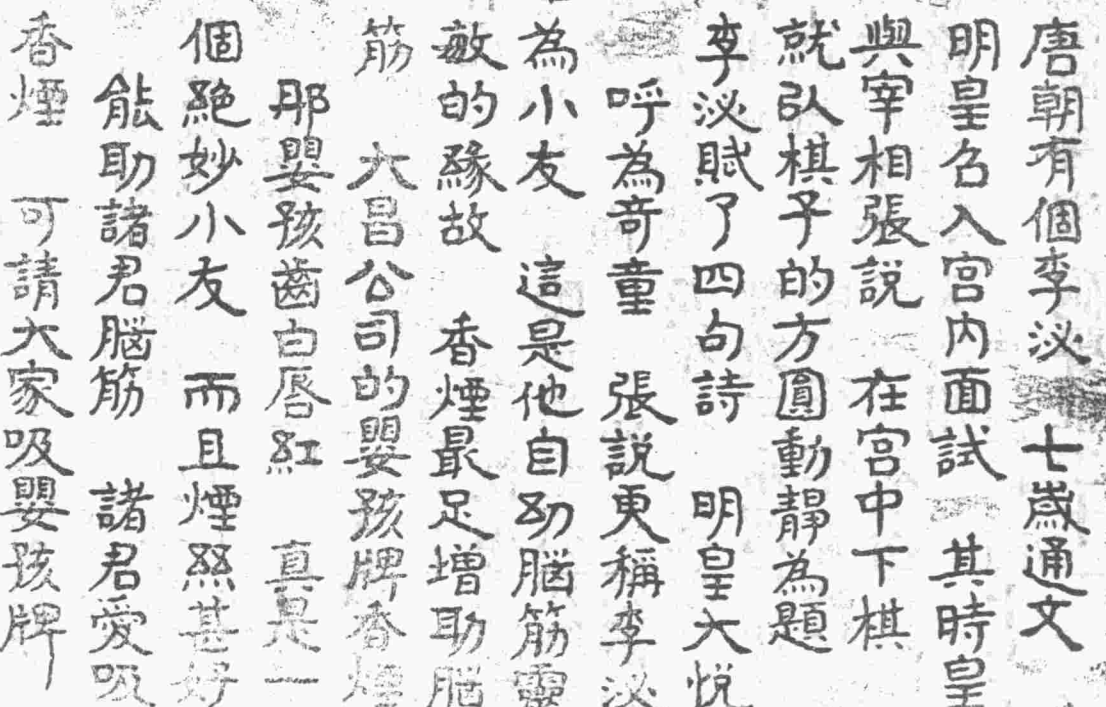 唐朝有個李泌　七歲通文
明皇召入宮内面試　其時皇
與宰相張説　在宮中下棋
就以棋子的方圓動靜為題
李泌賦了四句詩　明皇大悦
呼為奇童　張説更稱李泌
為小友　這是他自幼腦筋靈
敏的緣故　香煙最足增助腦
筋　大昌公司的嬰孩牌香煙
那嬰孩齒白唇紅　真是一
個絕妙小友　而且煙絲甚好
能助諸君腦筋　諸君愛吸
香煙　可請大家吸嬰孩牌